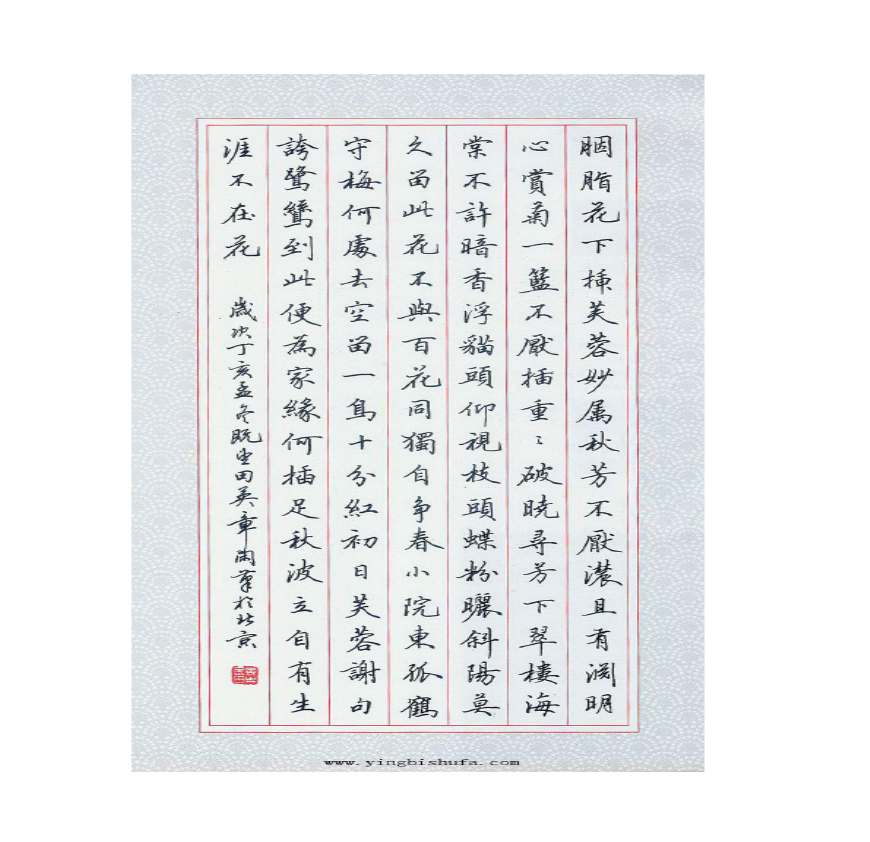 胭脂花下插芙蓉妙属秋芳不厭濃且有渊明
心賞菊一籃不厭插重〻破曉尋芳下翠樓海
棠不許暗香浮貓頭仰視枝頭蝶粉曬斜陽莫
久留此花不與百花同獨自争春小院東孤鶴
守梅何處去空留一鳥十分紅初日芙蓉謝句
誇鷺鷥到此便為家緣何插足秋波立自有生
涯不在花
歲次丁亥孟冬既望田英章閑筆於北京
www.yingbishufa.com